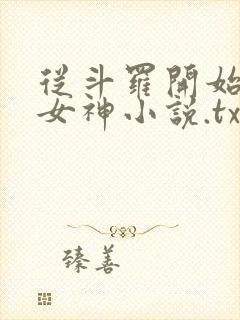 從斗羅開始
女神小說.tx
臻善